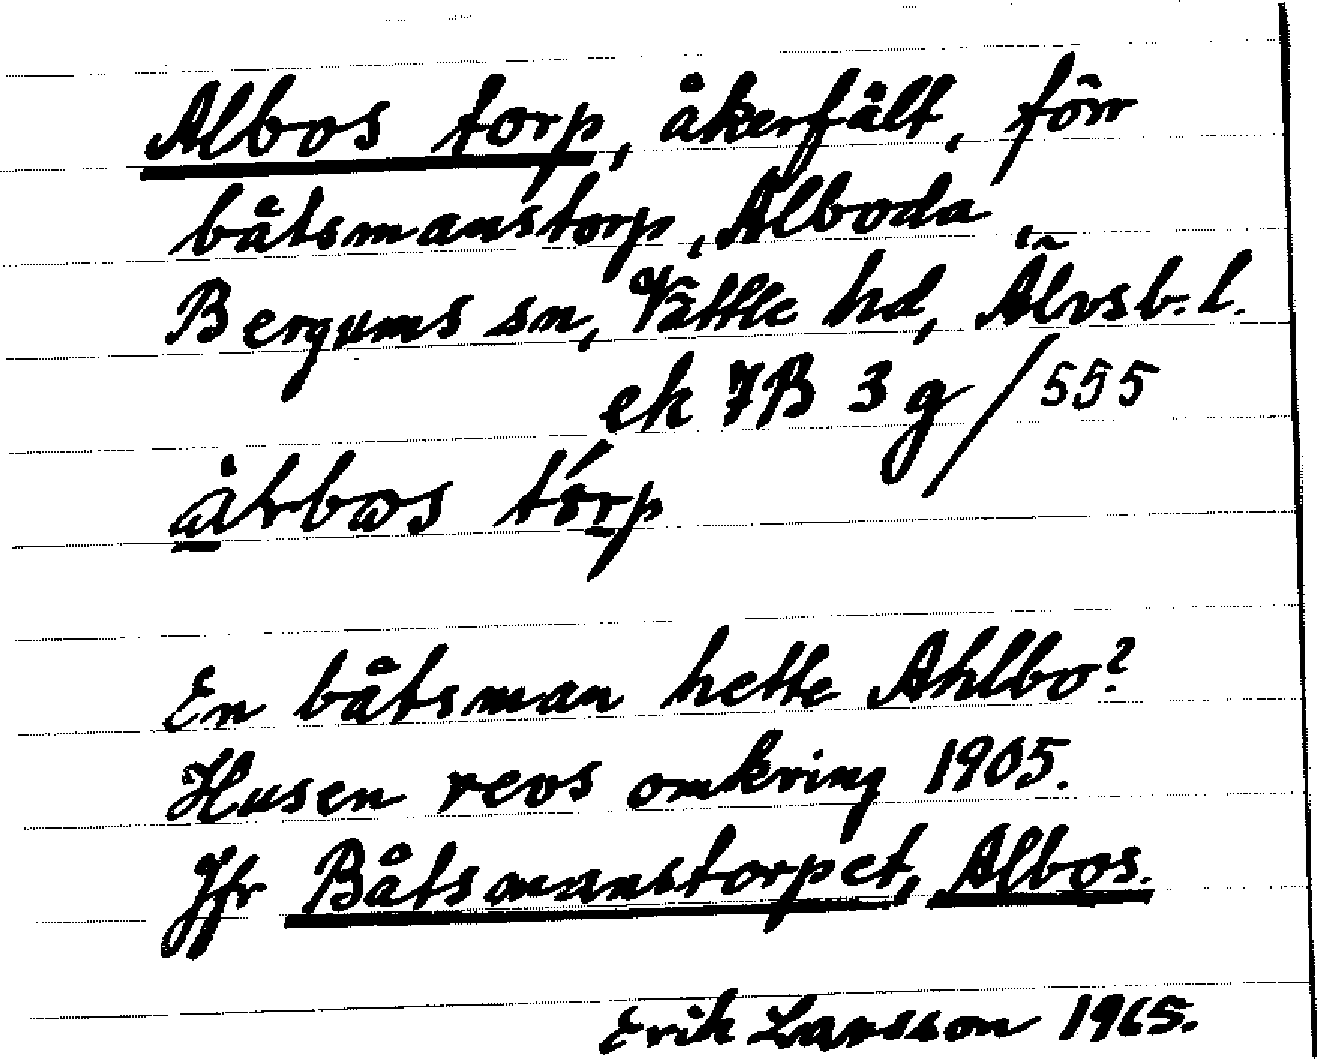 Albos torp, åkerfält, förr
båtsmanstorp, Alboda,
Bergums sn, Vättle hd, Älvsb. l.
ek 7B 3g/555
torp
En båtsman hette Ahlbo?
Husen revs omkring 1905.
Jfr Båtsmanstorpet, Albos.
Erik Larsson 1965.